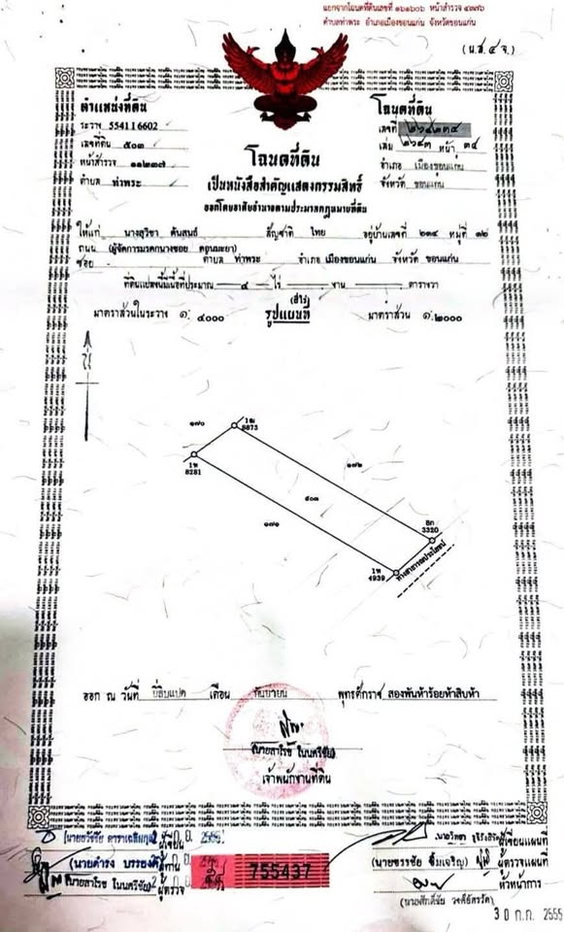 แยกจากโฉนดที่ดินเลขที่ ๑๖๑๖๐๖ หน้าสำรวจ ๔๓๗๖
ตำบลท่าพระ อำเภอเมืองขอนแก่น จังหวัดขอนแก่น
(น.ส.๔ จ.)
ตำแหน่งที่ดิน
ระวาง 554116602
เลขที่ดิน ๕๐๓
หน้าสำรวจ ๑๑๒๓๗
ตำบล ท่าพระ
โฉนดที่ดิน
เลขที่ ๒๖๔๒๓๔
เล่ม ๒๖๔๓ หน้า ๓๔
อำเภอ เมืองขอนแก่น
จังหวัด ขอนแก่น
โฉนดที่ดิน
เป็นหนังสือสำคัญแสดงกรรมสิทธิ์
ออกโดยอาศัยอำนาจตามประมวลกฎหมายที่ดิน
ให้แก่ นางสุริชา ต้นสนธ์ สัญชาติ ไทย อยู่บ้านเลขที่ ๒๓๔ หมู่ที่ ๑๒
ถนน (ผู้จัดการมรดกนางซอย ดอนมะยา)
ซอย ตำบล ท่าพระ อำเภอ เมืองขอนแก่น จังหวัด ขอนแก่น
ที่ดินแปลงนี้มีเนื้อที่ประมาณ ๔ ไร่ งาน ตารางวา
(สี่ไร่)
มาตราส่วนในระวาง ๑:๔๐๐๐ รูปแผนที่ มาตราส่วน ๑:๒๐๐๐
น
๑๗๐
8873
8281
๑๗๒
๕๐๓
๑๗๑
3320
4939
ทางสาธารณประโยชน์
ออก ณ วันที่ ยี่สิบแปด เดือน กันยายน พุทธศักราช สองพันห้าร้อยห้าสิบห้า
(นายสาโรช ในนครีชัย)
เจ้าพนักงานที่ดิน
ผู้เขียน
(นายดำรง บรรยงค์) ผู้ทาน
(นายสาโรช ในนครีชัย) ผู้ตรวจ
755437
ผู้เขียนแผนที่
(นายชรรชัย ชิ้มเจริญ) ผู้ตรวจแผนที่
หัวหน้าการ
30 ก.ค. 2555